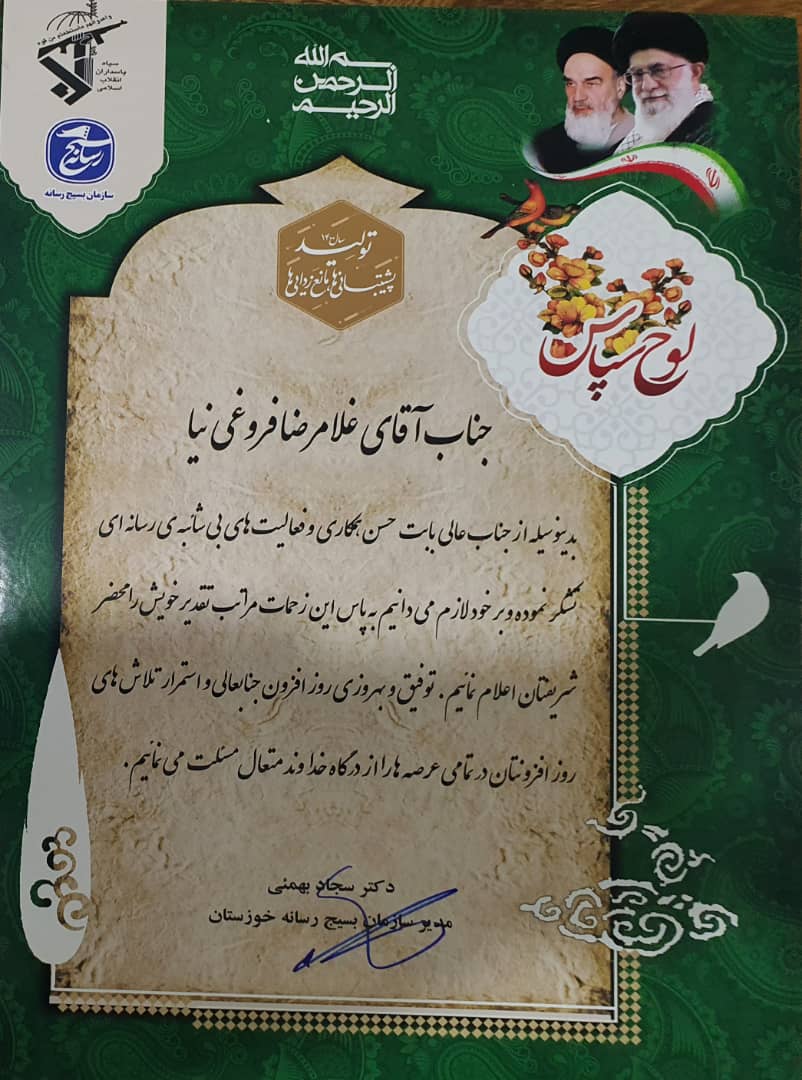 بسم الله
الرحمن
الرحیم
سپاه
پاسداران
انقلاب
اسلامی
رسانه بسیج
سازمان بسیج رسانه
سال ۱۴۰۰
تولید
پشتیبانی‌ها مانع‌زدایی‌ها
لوح سپاس
جناب آقای غلامرضا فروغی نیا
بدینوسیله از جناب عالی بابت حسن همکاری و فعالیت های بی شائبه ی رسانه ای
تشکر نموده و بر خود لازم می دانیم به پاس این زحمات مراتب تقدیر خویش را محضر
شریفتان اعلام نمائیم. توفیق و بهروزی روز افزون جنابعالی و استمرار تلاش های
روز افزونتان در تمامی عرصه ها را از درگاه خداوند متعال مسئلت می نمائیم.
دکتر سجاد بهمئی
مدیر سازمان بسیج رسانه خوزستان